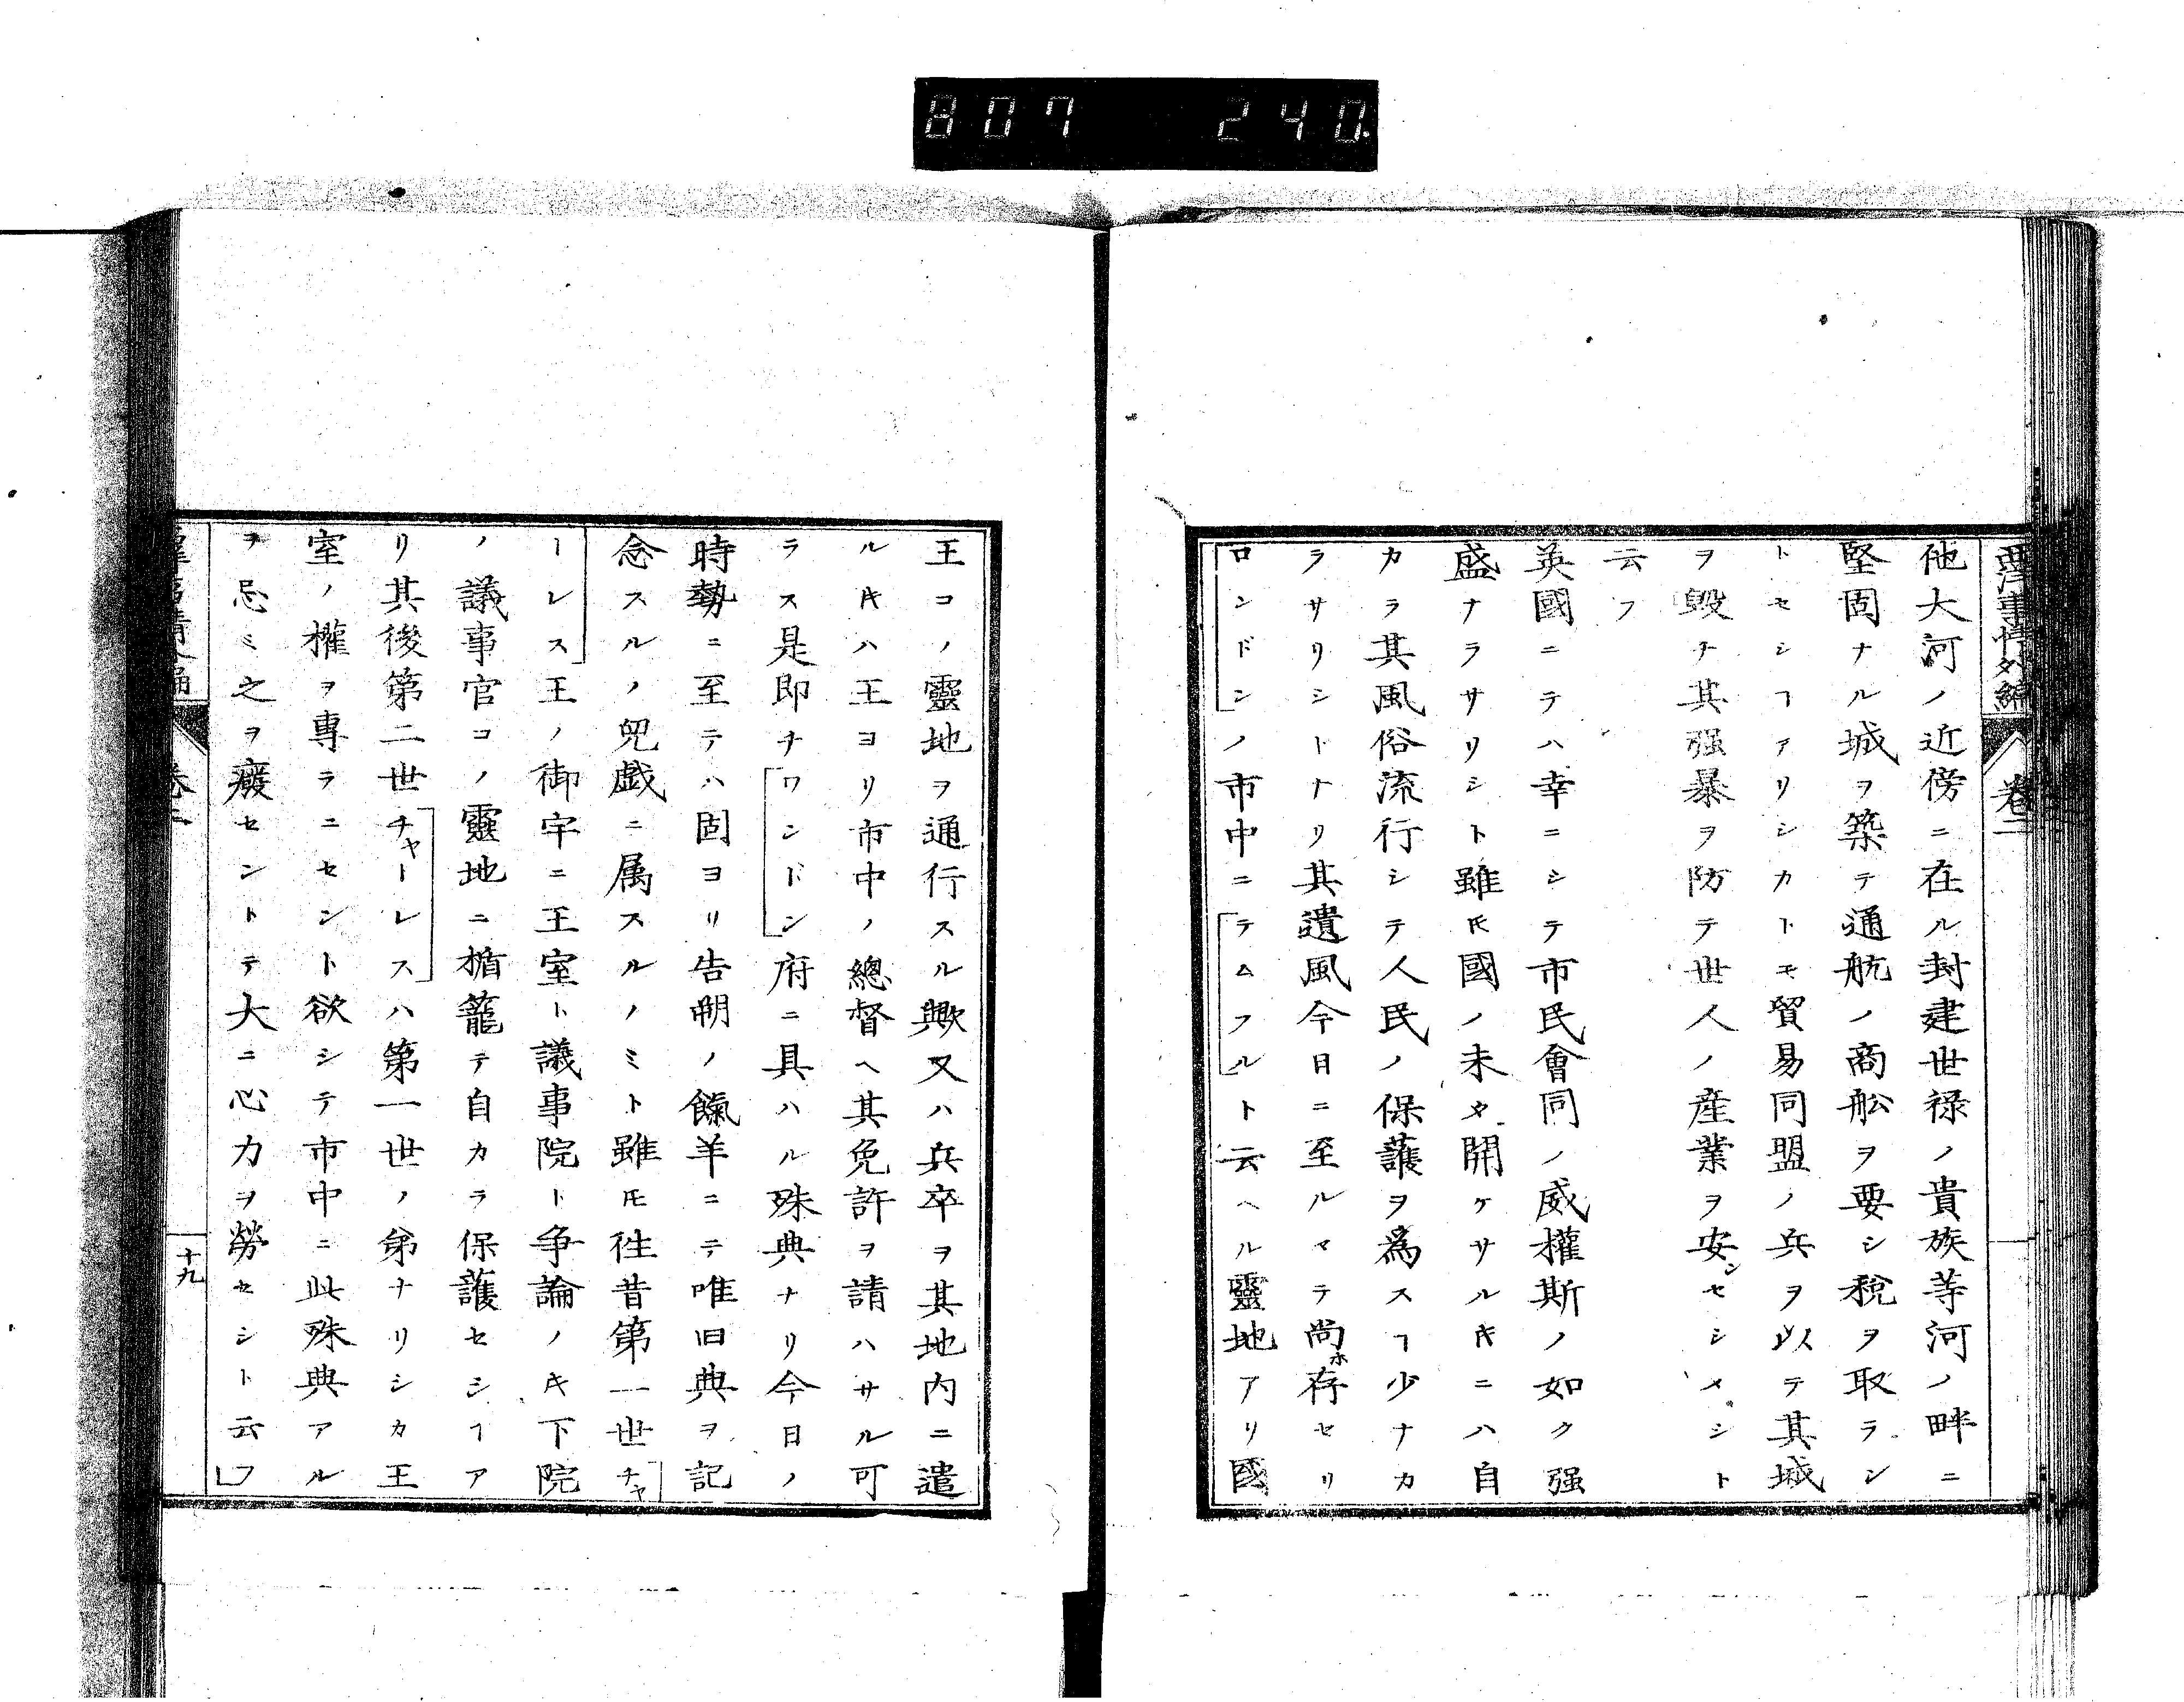 807 240.
西洋事情外編 卷二
他大河ノ近傍ニ在ル封建世禄ノ貴族等河ノ畔ニ
堅固ナル城ヲ築テ通航ノ商舩ヲ要シ税ヲ取ラン
トセシヿアリシカトモ貿易同盟ノ兵ヲ以テ其城
ヲ毀チ其强暴ヲ防テ世人ノ産業ヲ安ンセシメシト
云フ
英國ニテハ幸ニシテ市民會同ノ威權斯ノ如ク强
盛ナラサリシト雖𪜈國ノ未タ開ケサルキニハ自
カラ其風俗流行シテ人民ノ保護ヲ爲スヿ少ナカ
ラサリシトナリ其遺風今日ニ至ルマテ尚ホ存セリ
ロンドンノ市中ニテムフルト云ヘル靈地アリ國
王コノ靈地ヲ通行スル歟又ハ兵卒ヲ其地内ニ遣
ルキハ王ヨリ市中ノ總督ヘ其免許ヲ請ハサル可
ラス是即チロンドン府ニ具ハル殊典ナリ今日ノ
時勢ニ至テハ固ヨリ告朔ノ餼羊ニテ唯旧典ヲ記
念スルノ兒戯ニ属スルノミト雖𪜈徃昔第一世チャ
ーレス王ノ御宇ニ王室ト議事院ト争論ノキ下院
ノ議事官コノ靈地ニ楯籠テ自カラ保護セシヿア
リ其後第二世チャーレスハ第一世ノ弟ナリシカ王
室ノ權ヲ專ラニセント欲シテ市中ニ此殊典アル
ヲ忌ミ之ヲ癈セントテ大ニ心力ヲ勞セシト云フ
十九